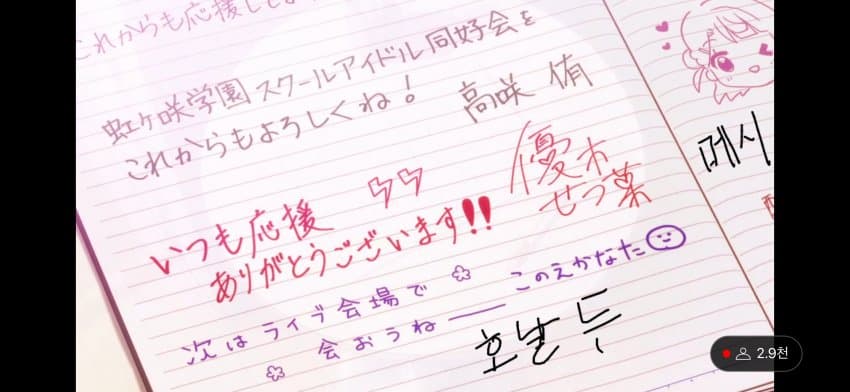 これからも応援し
虹ヶ咲学園スクールアイドル同好会を
これからもよろしくね！
高咲 侑
いつも応援
ありがとうございます!!
優木
せつ菜
次はライブ会場で
会おうねー
このえかなた
메시
호날두
2.9천